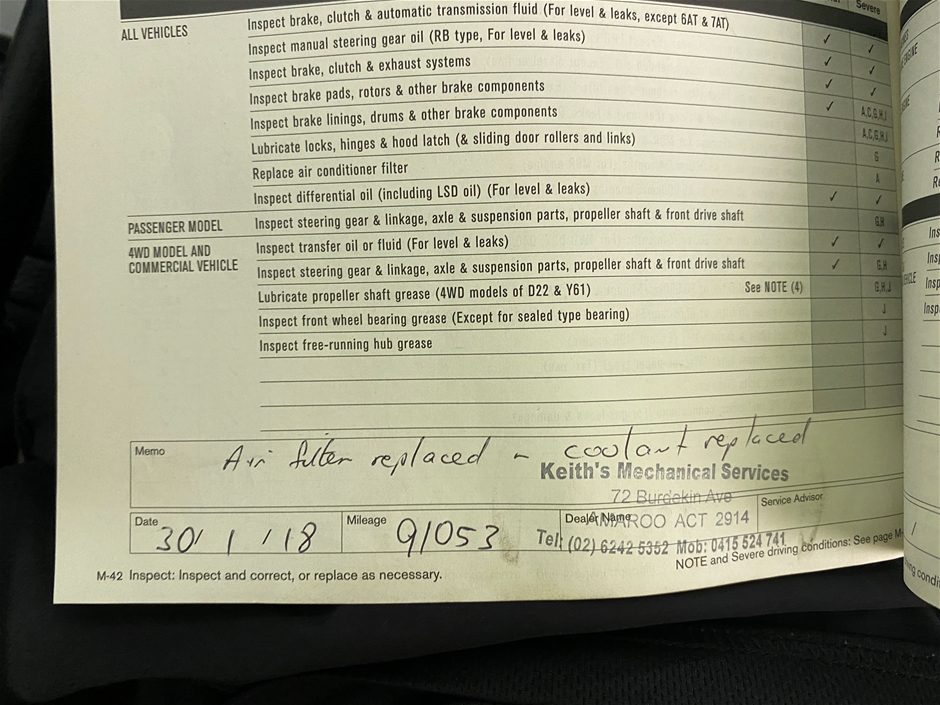 Severe
ALL VEHICLES
Inspect brake, clutch & automatic transmission fluid (For level & leaks, except 6AT & 7AT) ✓ ✓
Inspect manual steering gear oil (RB type, For level & leaks) ✓ ✓
Inspect brake, clutch & exhaust systems ✓ ✓
Inspect brake pads, rotors & other brake components ✓ A,C,G,H,I
Inspect brake linings, drums & other brake components A,C,G,H,I
Lubricate locks, hinges & hood latch (& sliding door rollers and links) G
Replace air conditioner filter A
Inspect differential oil (including LSD oil) (For level & leaks) ✓ ✓
PASSENGER MODEL
Inspect steering gear & linkage, axle & suspension parts, propeller shaft & front drive shaft G,H
4WD MODEL AND
COMMERCIAL VEHICLE
Inspect transfer oil or fluid (For level & leaks) ✓ ✓
Inspect steering gear & linkage, axle & suspension parts, propeller shaft & front drive shaft ✓ G,H
Lubricate propeller shaft grease (4WD models of D22 & Y61) See NOTE (4) G,H,J
Inspect front wheel bearing grease (Except for sealed type bearing) J
Inspect free-running hub grease J
Memo
Air filter replaced - coolant replaced
Keith's Mechanical Services
72 Burdekin Ave
Date 30/1/18
Mileage 91053
Dealer Name
AMAROO ACT 2914
Service Advisor
Tel: (02) 6242 5352 Mob: 0415 524 741
NOTE and Severe driving conditions: See page M-
M-42 Inspect: Inspect and correct, or replace as necessary.